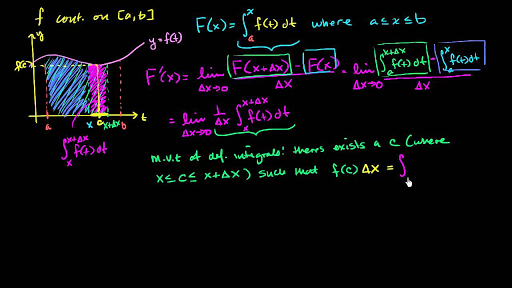 f cont. on [a,b]
y
y = f(t)
f(c)
a
x
c
x+Δx
b
t
∫ₓ^(x+Δx) f(t) dt
F(x) = ∫ₐ^x f(t) dt where a ≤ x ≤ b
F'(x) = lim Δx→0 F(x+Δx) - F(x) / Δx = lim Δx→0 ∫ₐ^(x+Δx) f(t) dt - ∫ₐ^x f(t) dt / Δx
= lim Δx→0 1/Δx ∫ₓ^(x+Δx) f(t) dt
m.v.t of def. integrals: there exists a c (where
x ≤ c ≤ x+Δx) such that f(c) Δx = ∫